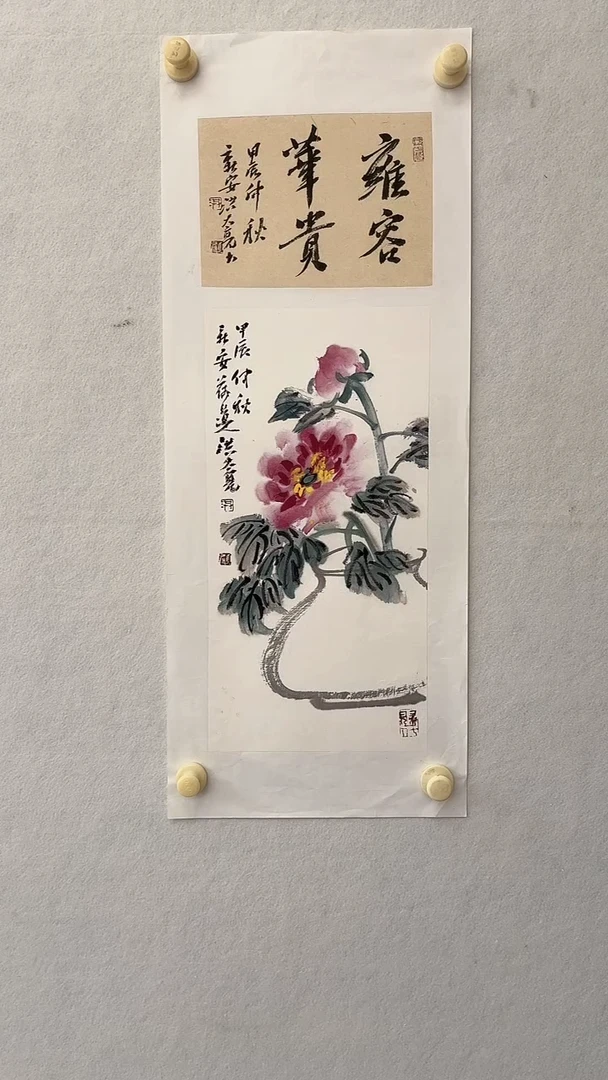 雍容
華貴
甲辰仲秋
新安洪大亮书
甲辰仲秋
新安荷邊洪大亮